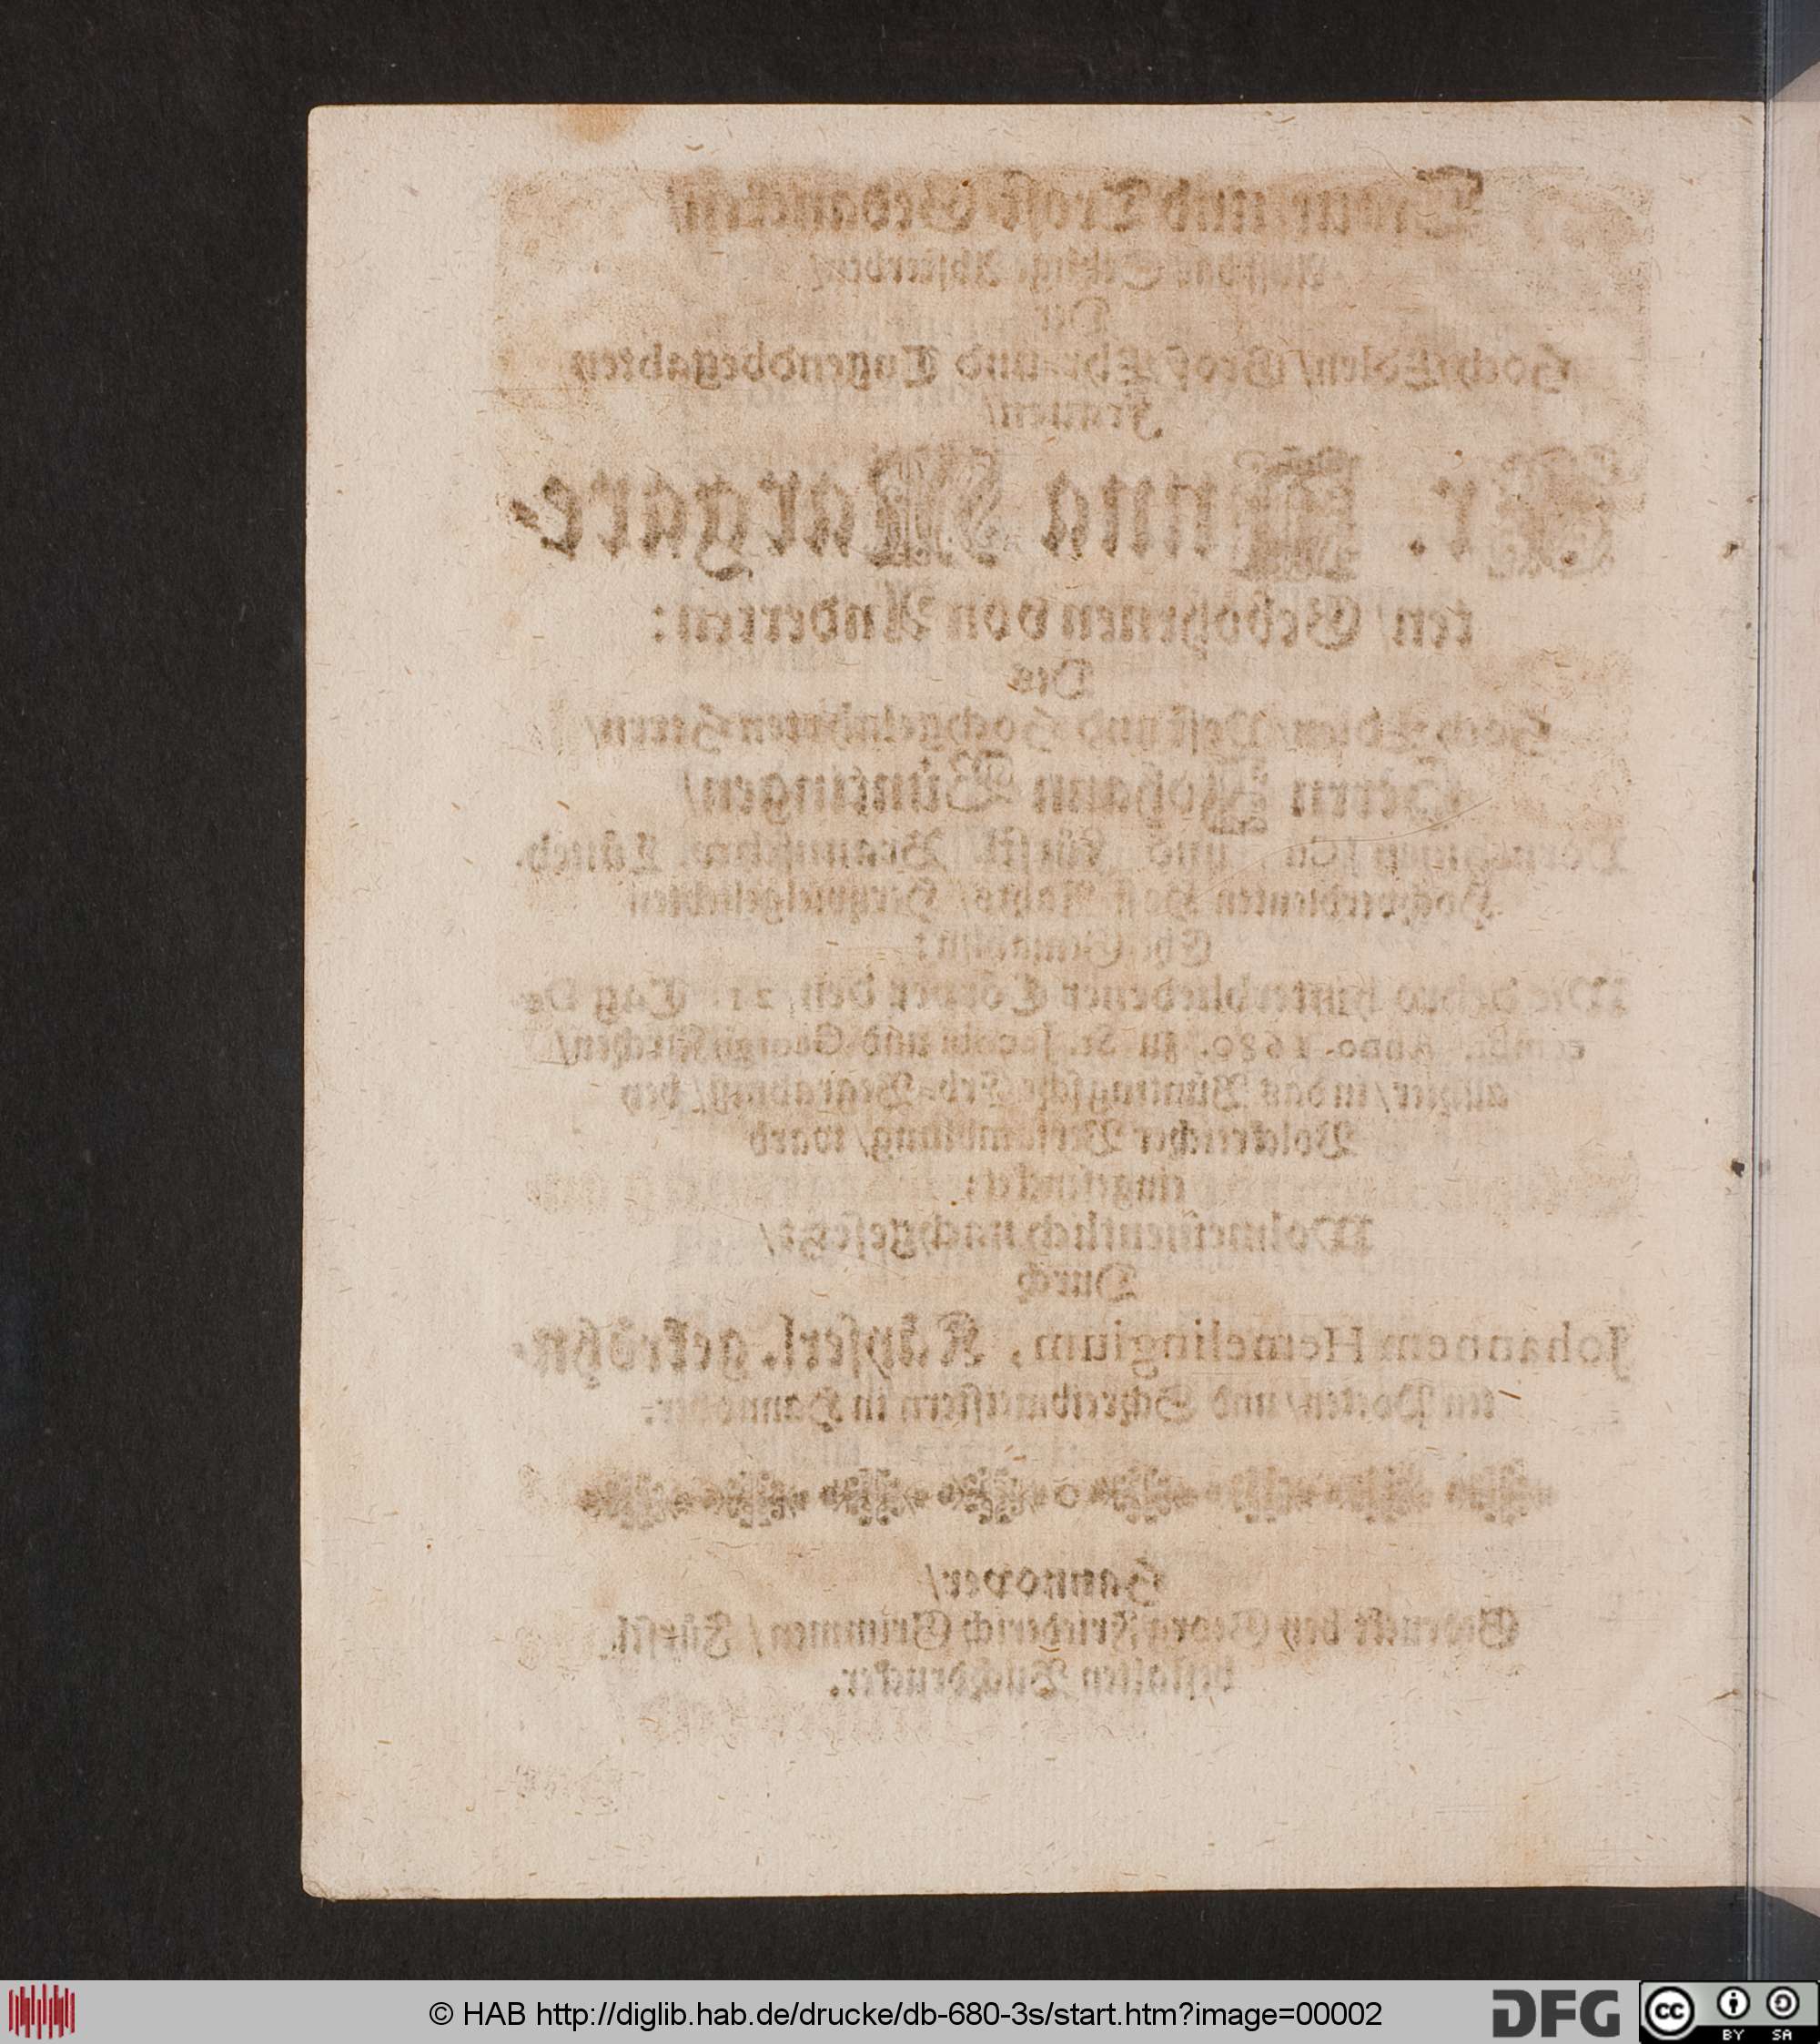 Traur- und Trost-Gedancken/
Selige Absterben/
Der
Hoch-Edlen/ Groß-Ehr- und Tugendbegabten
Frauen/
Fr. Anna Margare-
ten/ Gebohrnen von Anderten:
Des
Hoch-Edlen/ Vest und Hochgelahrten Herrn/
Herrn Johann Büntingen/
und Fürstl. Braunschw. Lüneb.
Hochverdienten Hof-Rahts/ Hertzvielgeliebten
Ehe
hinterbliebener Cörper den 21. Tag De-
cembr. Anno 1680. zu St. Jacobi und Georgii Kirchen/
allhier/ in das Büntingsche Erb-Begräbniß/ bey
Volckreicher Versamblung/ ward
eingesencket;
Wolmeinentlich nachgesetzt/
Durch
Johannem Hemelingium, Käyserl. gekröhn-
ten Poeten/ und Schreibmeistern in Hannover.
Hannover/
Gedruckt bey Georg Friederich Grimmen/ Fürstl.
bestalten Buchdrucker.
© HAB http://diglib.hab.de/drucke/db-680-3s/start.htm?image=00002
DFG
cc
BY SA